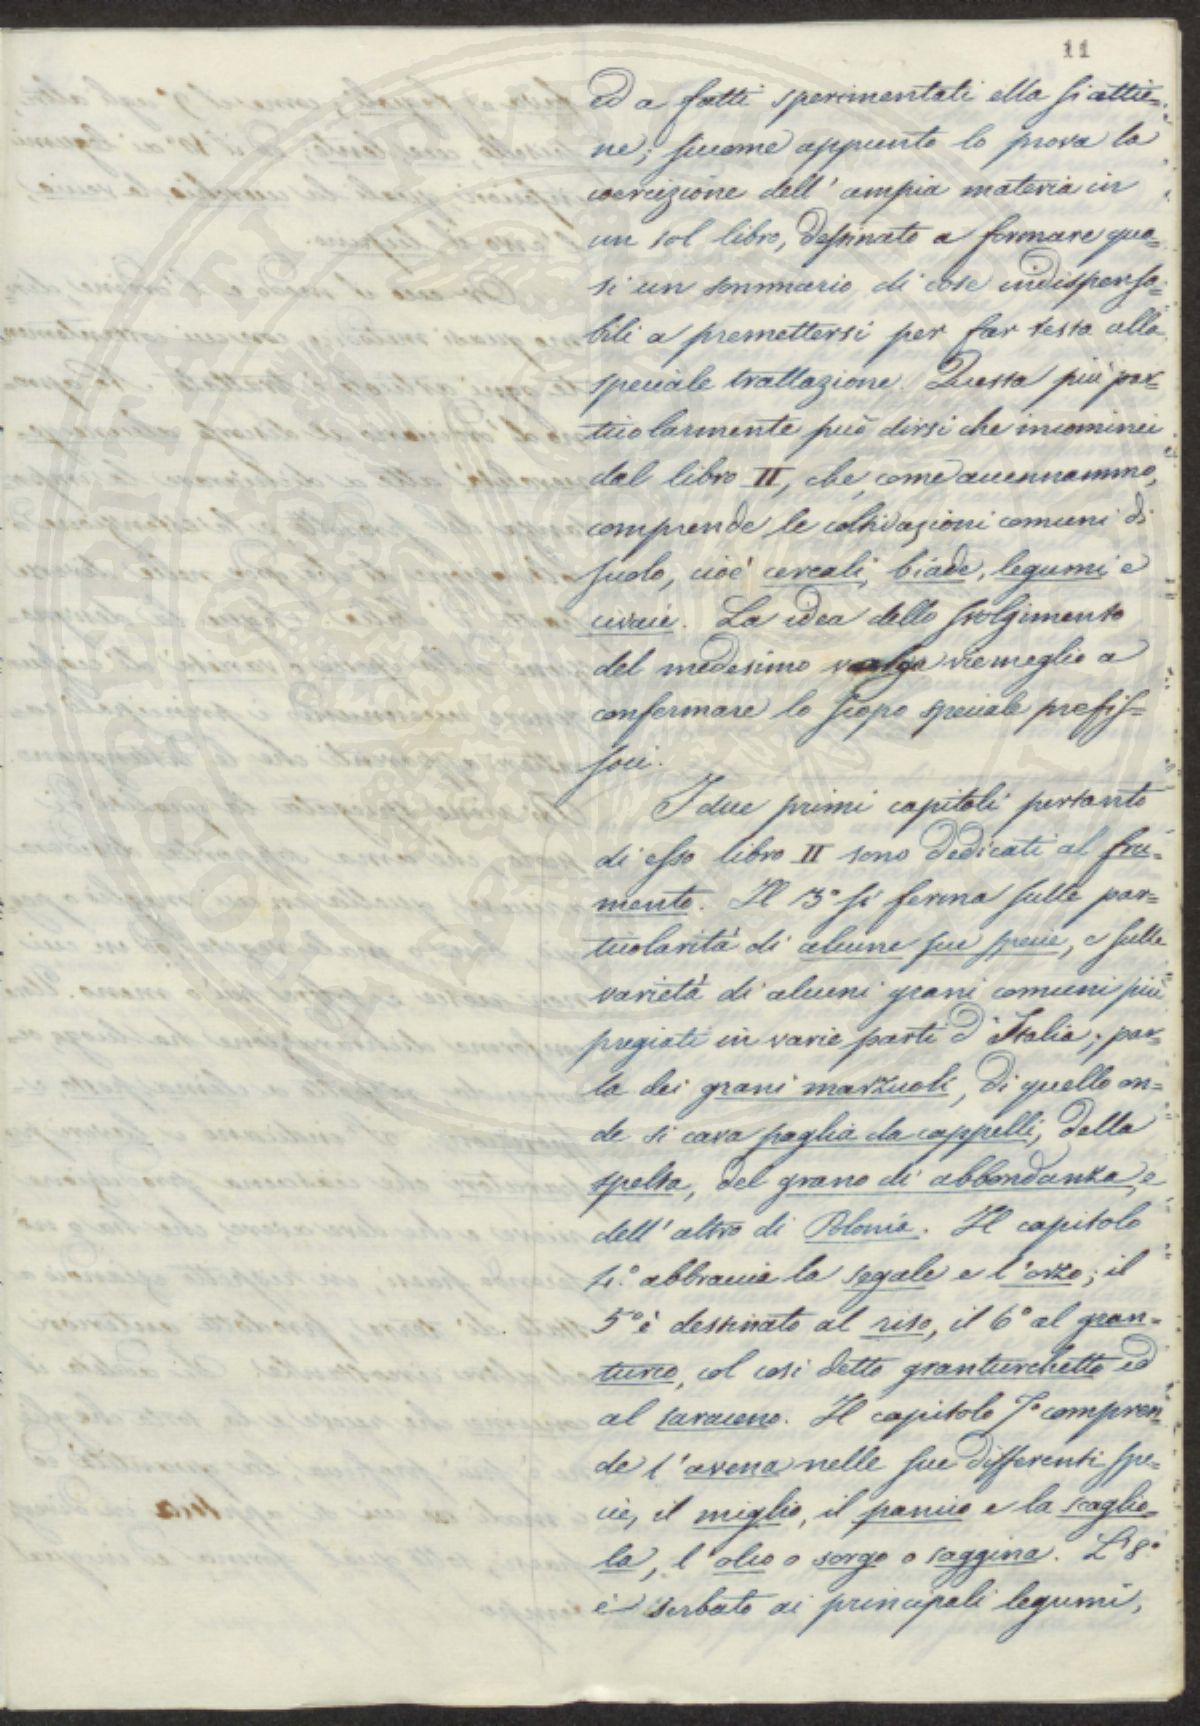 11
ed a fatti sperimentati ella si attie=
ne; siccome appunto lo prova la
coercizione dell' ampia materia in
un sol libro, destinato a formare qua=
si un sommario di cose indispensa=
bili a premettersi per far testa alla
speciale trattazione. Questa più par=
ticolarmente può dirsi che incominci
dal libro II, che, come accennammo,
comprende le coltivazioni comuni di
suolo, cioè cereali, biade, legumi e
civaie. La idea dello svolgimento
del medesimo valga viemeglio a
confermare lo scopo speciale prefis=
soci.
I due primi capitoli pertanto
di esso libro II sono dedicati al fru=
mento. Il 3° si ferma sulle par=
ticolarità di alcune sue specie, e sulle
varietà di alcuni grani comuni più
pregiati in varie parti d'Italia; par=
la dei grani marzuoli, di quello on=
de si cava paglia da cappelli, della
spelta, del grano di abbondanza, e
dell' altro di Polonia. Il capitolo
4.° abbraccia la segale e l'orzo; il
5° è destinato al riso, il 6° al gran=
turco, col così detto granturchetto ed
al saraceno. Il capitolo 7° compren
de l'avena nelle sue differenti spe=
cie, il miglio, il panico e la scaglio=
la, l'olco o sorgo o saggina. L' 8°
è serbato ai principali legumi,